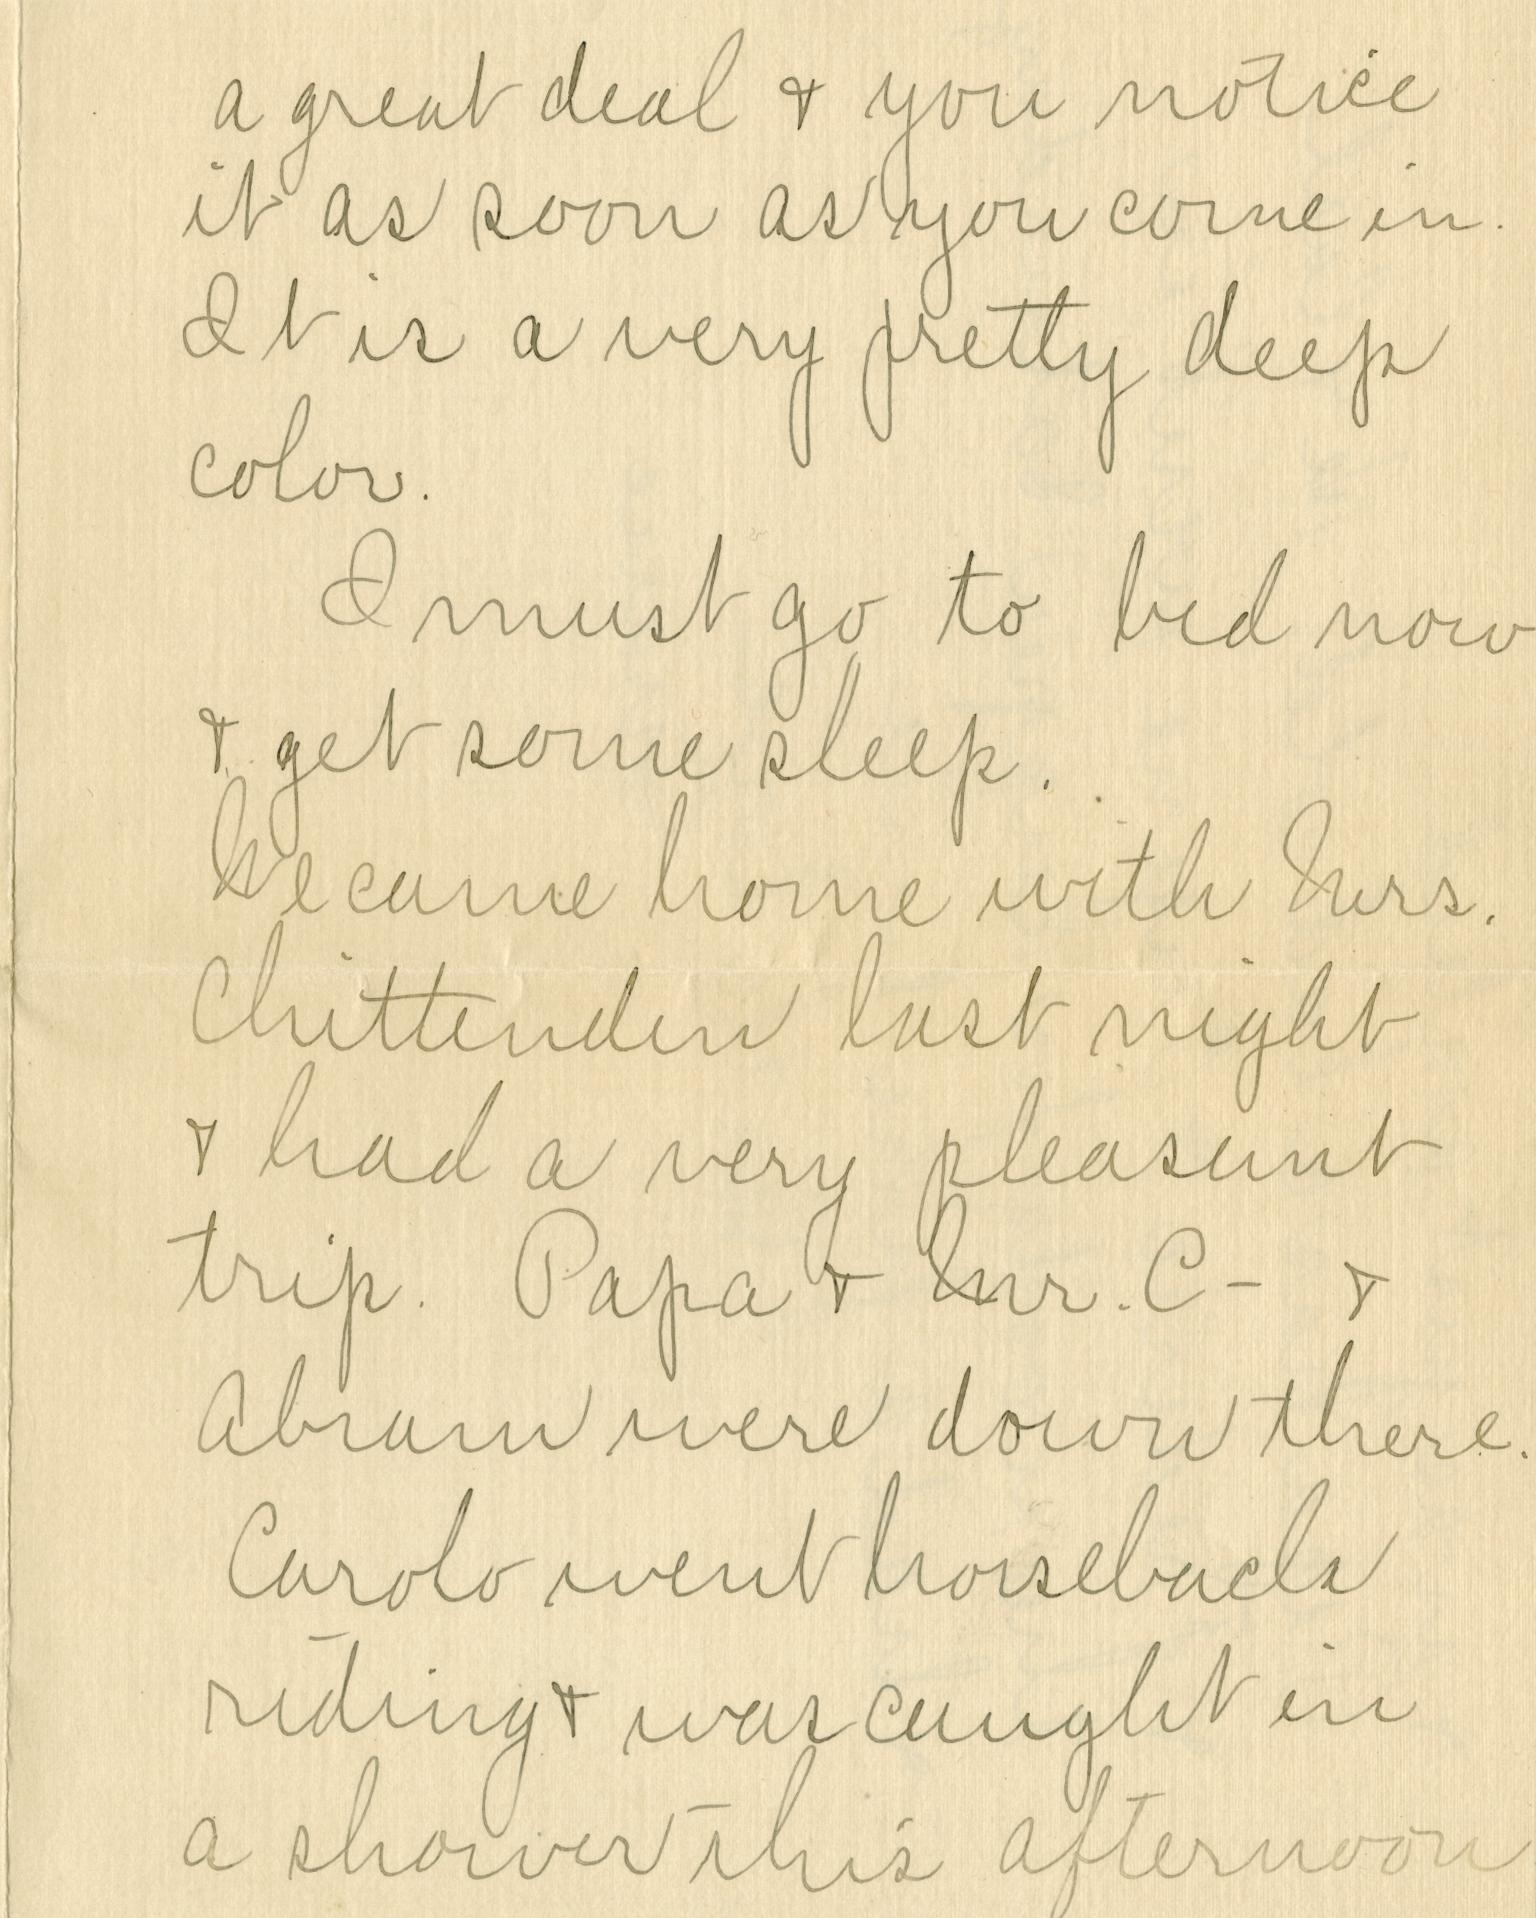 a great deal & you notice
it as soon as you come in.
It is a very pretty deep
color.
I must go to bed now
& get some sleep.
We came home with Mrs.
Chittenden last night
& had a very pleasant
trip. Papa & Mr. C- &
Abram were down there.
Carolo went horseback
riding & was caught in
a shower this afternoon